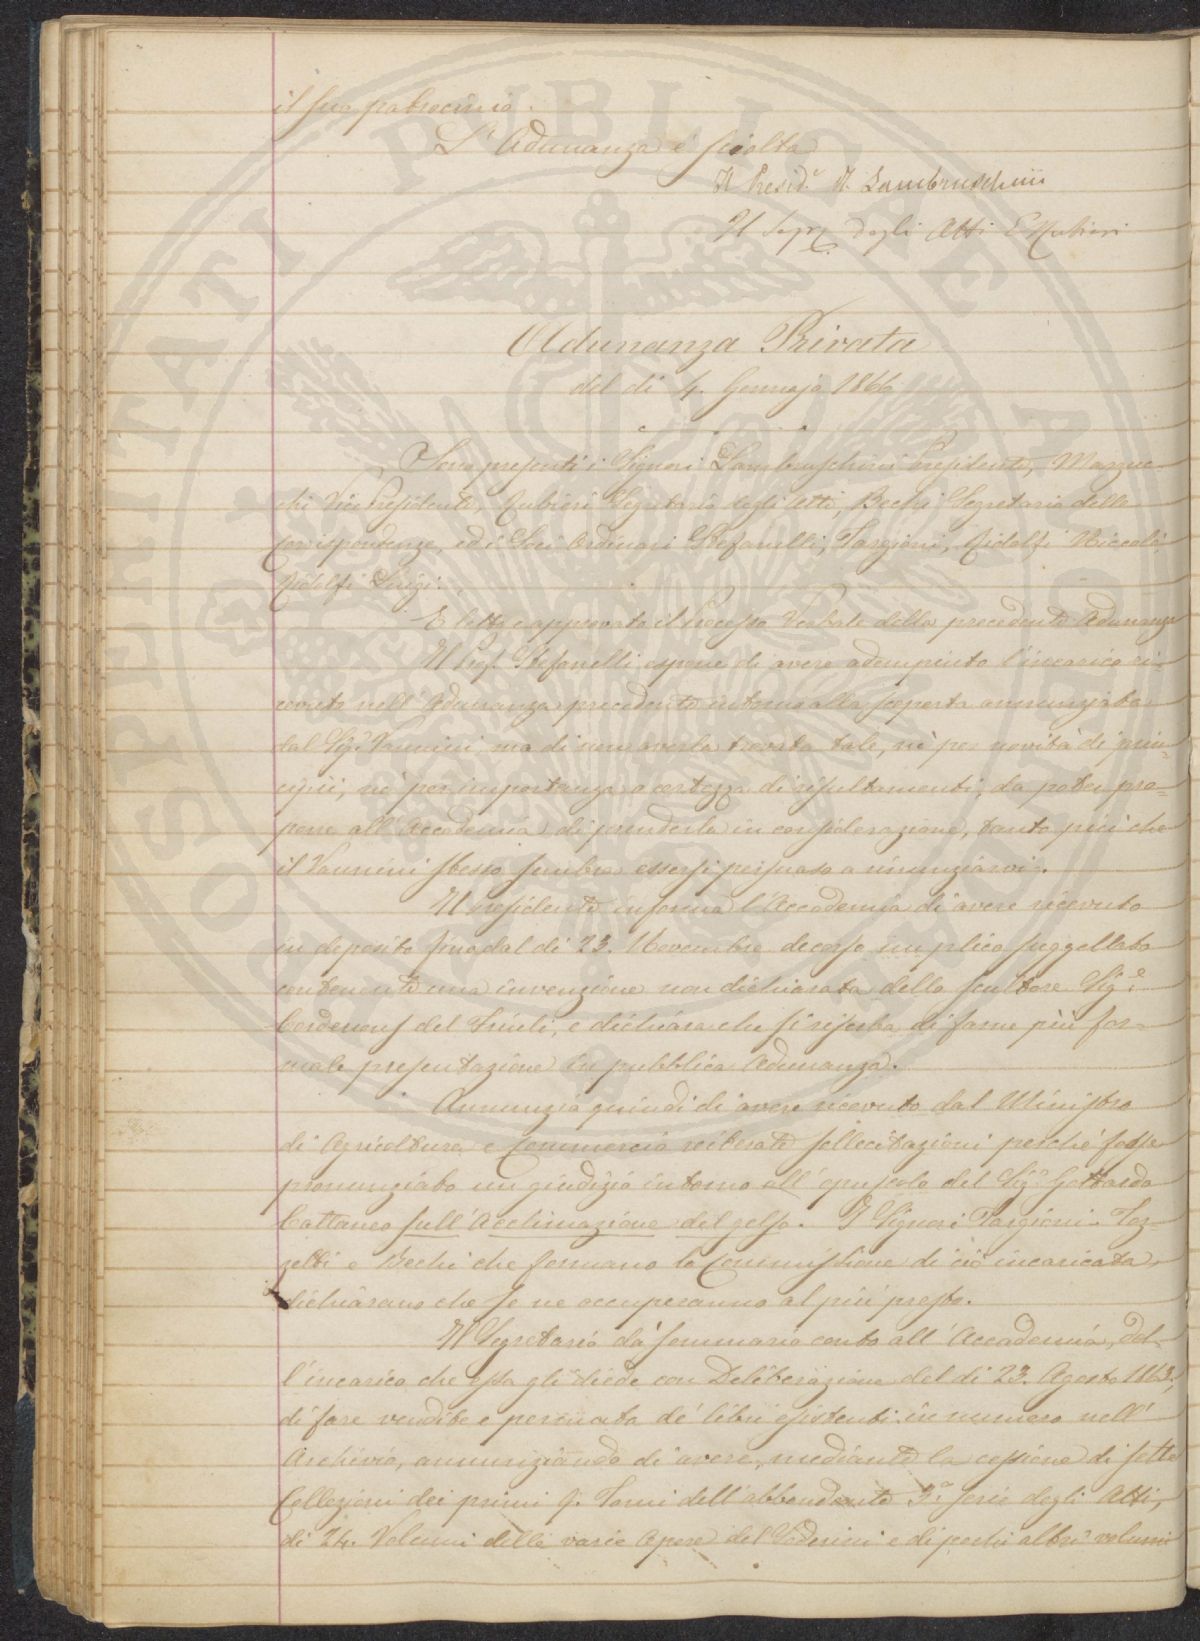 il suo patrocinio.
L'Adunanza è sciolta
Il Presid.e R. Lambruschini
Il Segr. degli Atti E Rubieri
Adunanza Privata
del dì 4. Gennajo 1866
Sono presenti i Signori Lambruschini Presidente, Mazzuc-
chi VicePresidente, Rubieri Segretario degli Atti, Bechi Segretario delle
Corrispondenze, ed i Soci Ordinari Stefanelli, Targioni, Ridolfi Niccolò,
Ridolfi Luigi.
È letto e approvato il Processo Verbale della precedente Adunanza
Il Prof. Stefanelli espone di avere adempiuto l'incarico ri-
cevuto nell'Adunanza precedente intorno alla scoperta annunziata
dal Sig.r Vannini, ma di non averla trovata tale, nè per novità di prin-
cipii, nè per importanza o certezza di resultamenti, da poter pro-
porre all'Accademia di prenderla in considerazione, tanto più che
il Vannini stesso sembra essersi persuaso a rinunziarvi.
Il Presidente informa l'Accademia di avere ricevuto
in deposito fino dal dì 23. Novembre decorso un plico suggellato
contenente una invenzione non dichiarata dello scultore Sig.e
Cordenons del Friuli, e dichiara che si riserba di farne più for-
male presentazione in pubblica Adunanza.
Annunzia quindi di avere ricevuto dal Ministro
di Agricoltura e Commercio reiterate sollecitazioni perchè fosse
pronunziato un giudizio intorno all'opuscolo del Sig.r Gottardo
Cattaneo sull'Acclimazione del gelso. I Signori Targioni-Toz-
zetti e Bechi che formano la Commissione di ciò incaricata,
dichiarano che se ne occuperanno al più presto.
Il Segretario dà sommario conto all'Accademia, del-
l'incarico che essa gli diede con Deliberazione del dì 23. Agosto 1863,
di fare vendite e permuta de' libri esistenti in numero nell'
Archivio, annunziando di avere, mediante la cessione di sette
Collezioni dei primi 9. Tomi dell'abbondante 3.a serie degli Atti,
di 24. Volumi delle varie Opere del Vaderini e di pochi altri volumi